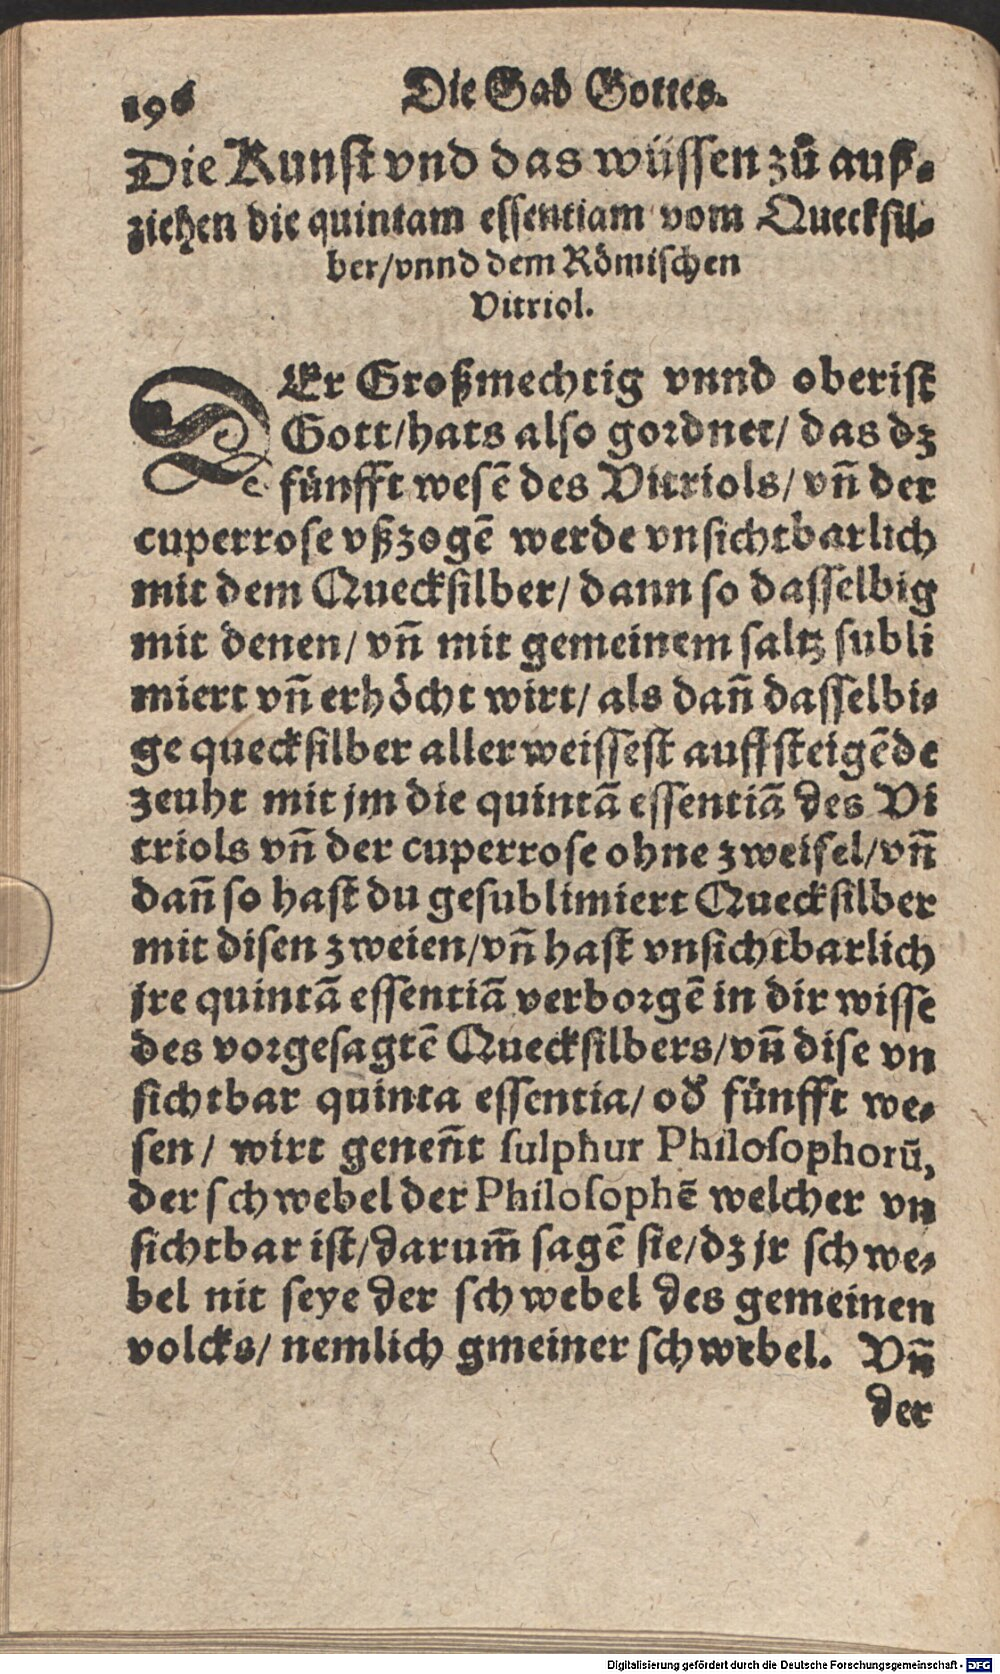 196 Die Gab Gottes.
Die Kunst vnd das wüssen zů auß-
ziehen die quintam essentiam vom Quecksil-
ber/vnnd dem Römischen
Vitriol.
DEr Großmechtig vnnd oberist
Gott/hats also gordnet/ das dz
fünfft wesẽ des Vitriols/ vñ der
cuperrose vßzogẽ werde vnsichtbarlich
mit dem Quecksilber/ dann so dasselbig
mit denen/ vñ mit gemeinem saltz subli
miert vñ erhöcht wirt/ als dañ dasselbi-
ge quecksilber allerweissest auffsteigẽde
zeuht mit jm die quintã essentiã des Vi
triols vñ der cuperrose ohne zweifel/vñ
dañ so hast du gesublimiert Quecksilber
mit disen zweien/vñ hast vnsichtbarlich
jre quintã essentiã verborgẽ in dir wisse
des vorgesagtẽ Quecksilbers/vñ dise vn
sichtbar quinta essentia/ od̕ fünfft we-
sen/ wirt geneñt sulphur Philosophorũ,
der schwebel der Philosophẽ welcher vn
sichtbar ist/darum̃ sagẽ sie/dz jr schwe-
bel nit seye der schwebel des gemeinen
volcks/ nemlich gmeiner schwebel. Vñ
der
Digitalisierung gefördert durch die Deutsche Forschungsgemeinschaft - DFG